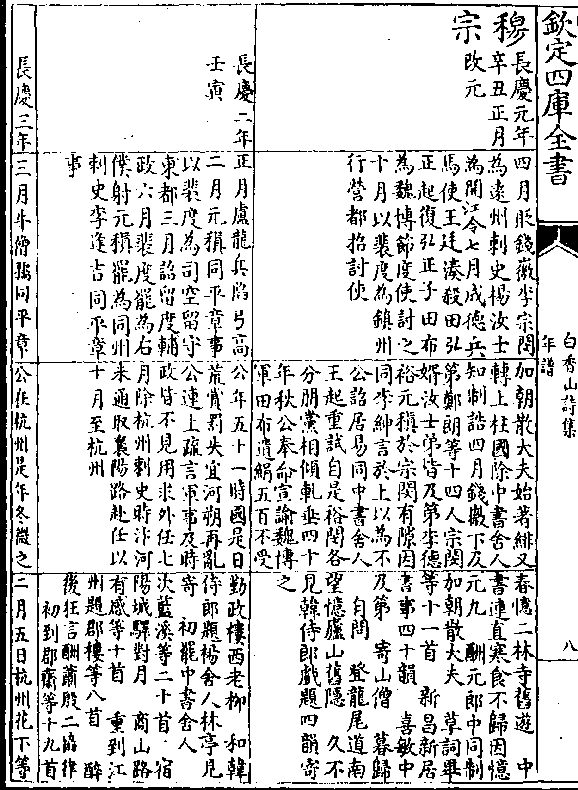 欽定四庫全書
白香山詩集
年譜
八
穆宗
長慶元年
辛丑正月
改元
四月貶錢徽李宗閔
為遠州刺史楊汝士
為開江令七月成德兵
馬使王廷湊殺田弘
正起復弘正子田布
為魏博節度使討之
十月以裴度為鎮州
行營都招討使
加朝散大夫始著緋又
轉上柱國除中書舍人
知制誥四月錢徽下及
第鄭朗等十四人宗閔
婿汝士弟皆及第李德
裕元稹於宗閔有隙因
同李紳言於上以為不
公詔居易同中書舍人
王起重試自是裕閔各
分朋黨相傾軋垂四十
年秋公奉命宣諭魏博
軍田布遺絹五百不受
春憶二林寺舊遊 中
書連直寒食不歸因憶
元九 酬元郎中同制
加朝散大夫 草詞畢
等十一首 新昌新居
書事四十韻 喜敏中
及第 寄山僧 暮歸
自問 登龍尾道南
望憶廬山舊隱 久不
見韓侍郎戲題四韻寄
之
長慶二年
壬寅
正月盧龍兵陷弓高
二月元稹同平章事
以裴度為司空留守
東都三月詔留度輔
政六月裴度罷為右
僕射元稹罷為同州
刺史李逢吉同平章
事
公年五十一時國是日
荒賞罰失宜河朔再亂
公連上疏言軍事及時
政皆不見用求外任七
月除杭州刺史時汴河
未通取襄陽路赴任以
十月至杭州
勤政樓西老柳 和韓
侍郎題楊舍人林亭見
寄 初罷中書舍人
次藍溪等二十首 宿
陽城驛對月 商山路
有感等十首 重到江
州題郡樓等八首 醉
後狂言酬蕭殷二協律
初到郡齋等十九首
長慶三年
三月牛僧孺同平章
公在杭州是年冬微之
二月五日杭州花下等